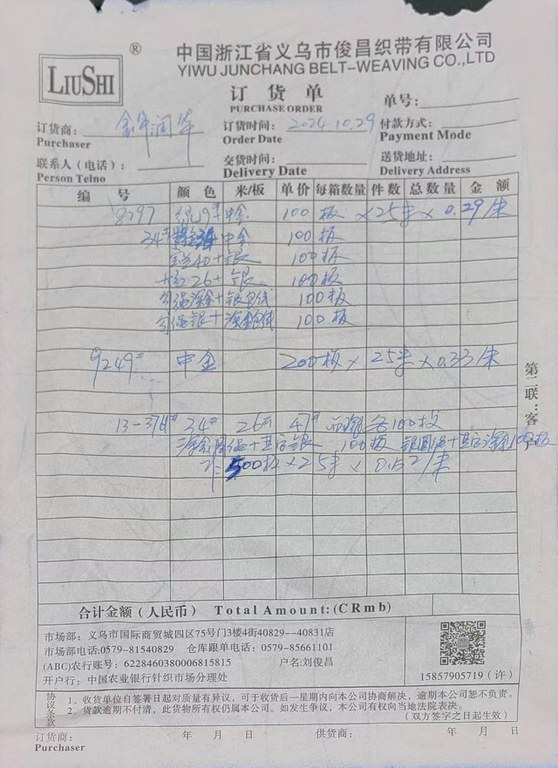 LIUSHI ®
中国浙江省义乌市俊昌织带有限公司
YIWU JUNCHANG BELT-WEAVING CO.,LTD
订货单
PURCHASE ORDER
单号:
订货商:
Purchaser
订货时间: 2024.10.29
Order Date
付款方式:
Payment Mode
联系人（电话）:
Person Telno
交货时间:
Delivery Date
送货地址:
Delivery Address
编 号 颜 色 米/板 单价 每箱数量 件数 总数量 金 额
8297 中金 100板 × 25米 × 0.29/米
34# 中金 100板
40+银 100板
26+银 100板
100板
100板
9249# 中金 200板 × 25米 × 0.33/米
34# 26# 47# 各100板
100板
500板 × 25米 × 0.52/米
第二联：客
合计金额（人民币） Total Amount:(CRmb)
市场部：义乌市国际商贸城四区75号门3楼4街40829--40831店
市场部电话:0579-81540829 仓库跟单电话:0579-85661101
(ABC)农行账号: 6228460380006815815 户名:刘俊昌
开户行：中国农业银行针织市场分理处
15857905719（许）
协议条款
1、收货单位自签署日起对质量有异议，可于收货后一星期内向本公司协商解决，逾期本公司恕不负责。
2、货款逾期不付清，此货物所有权仍属本公司。如发生争议，本公司有权向当地法院表决。
（双方签字之日起生效）
订货商: 年 月 日 供货商: 年 月 日
Purchaser